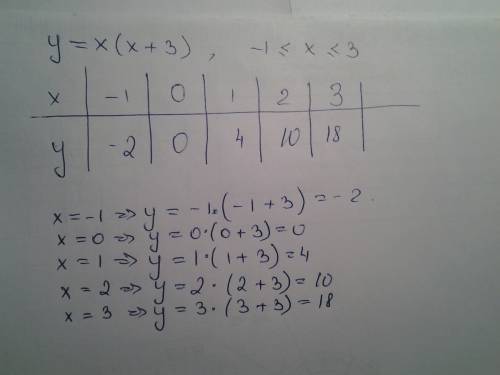 y = x(x+3), -1 ≤ x ≤ 3
x | -1 | 0 | 1 | 2 | 3 |
y | -2 | 0 | 4 | 10 | 18 |
x = -1 => y = -1·(-1+3) = -2.
x = 0 => y = 0·(0+3)=0
x = 1 => y = 1·(1+3)=4
x = 2 => y = 2·(2+3)=10
x = 3 => y = 3·(3+3)=18